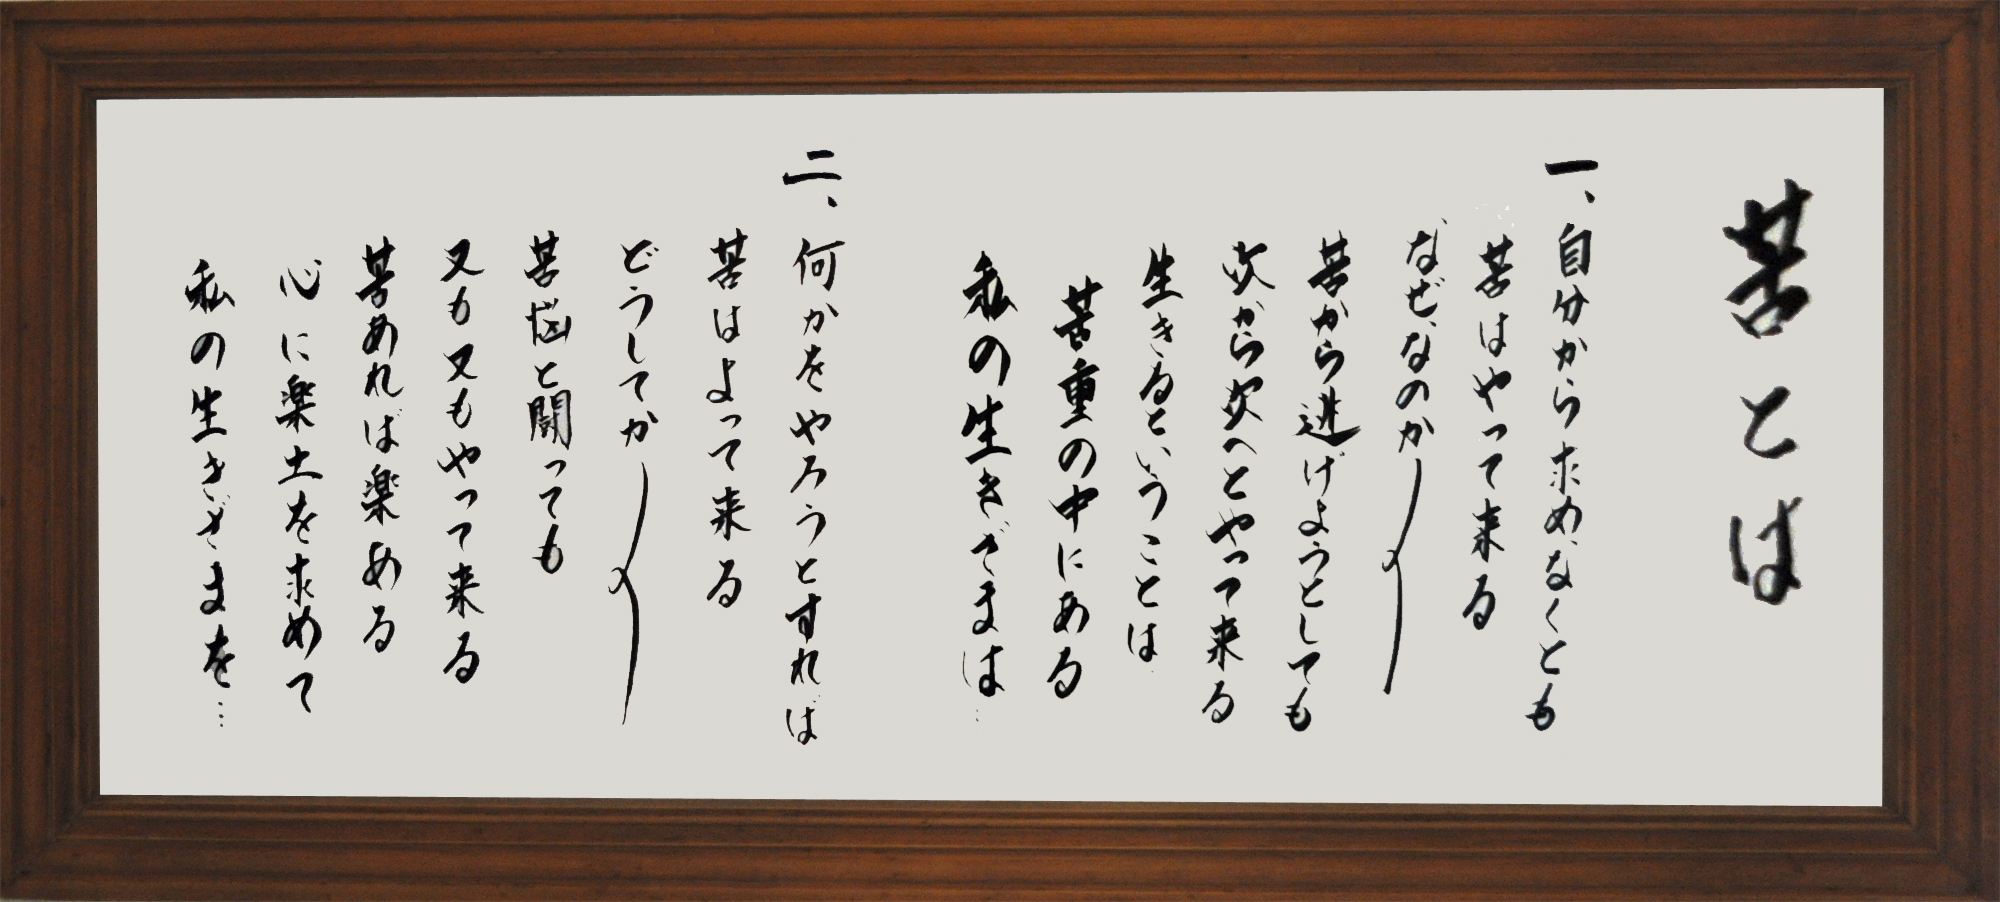 苦とは
一、自分から求めなくとも
苦はやって来る
なぜなのか
苦から逃げようとしても
次から次へとやって来る
生きるということは
苦重の中にある
私の生きざまは…
二、何かをやろうとすれば
苦はよって来る
どうしてか
苦悩と闘っても
又も又もやって来る
苦めれば楽める
心に楽土を求めて
私の生きざまを…